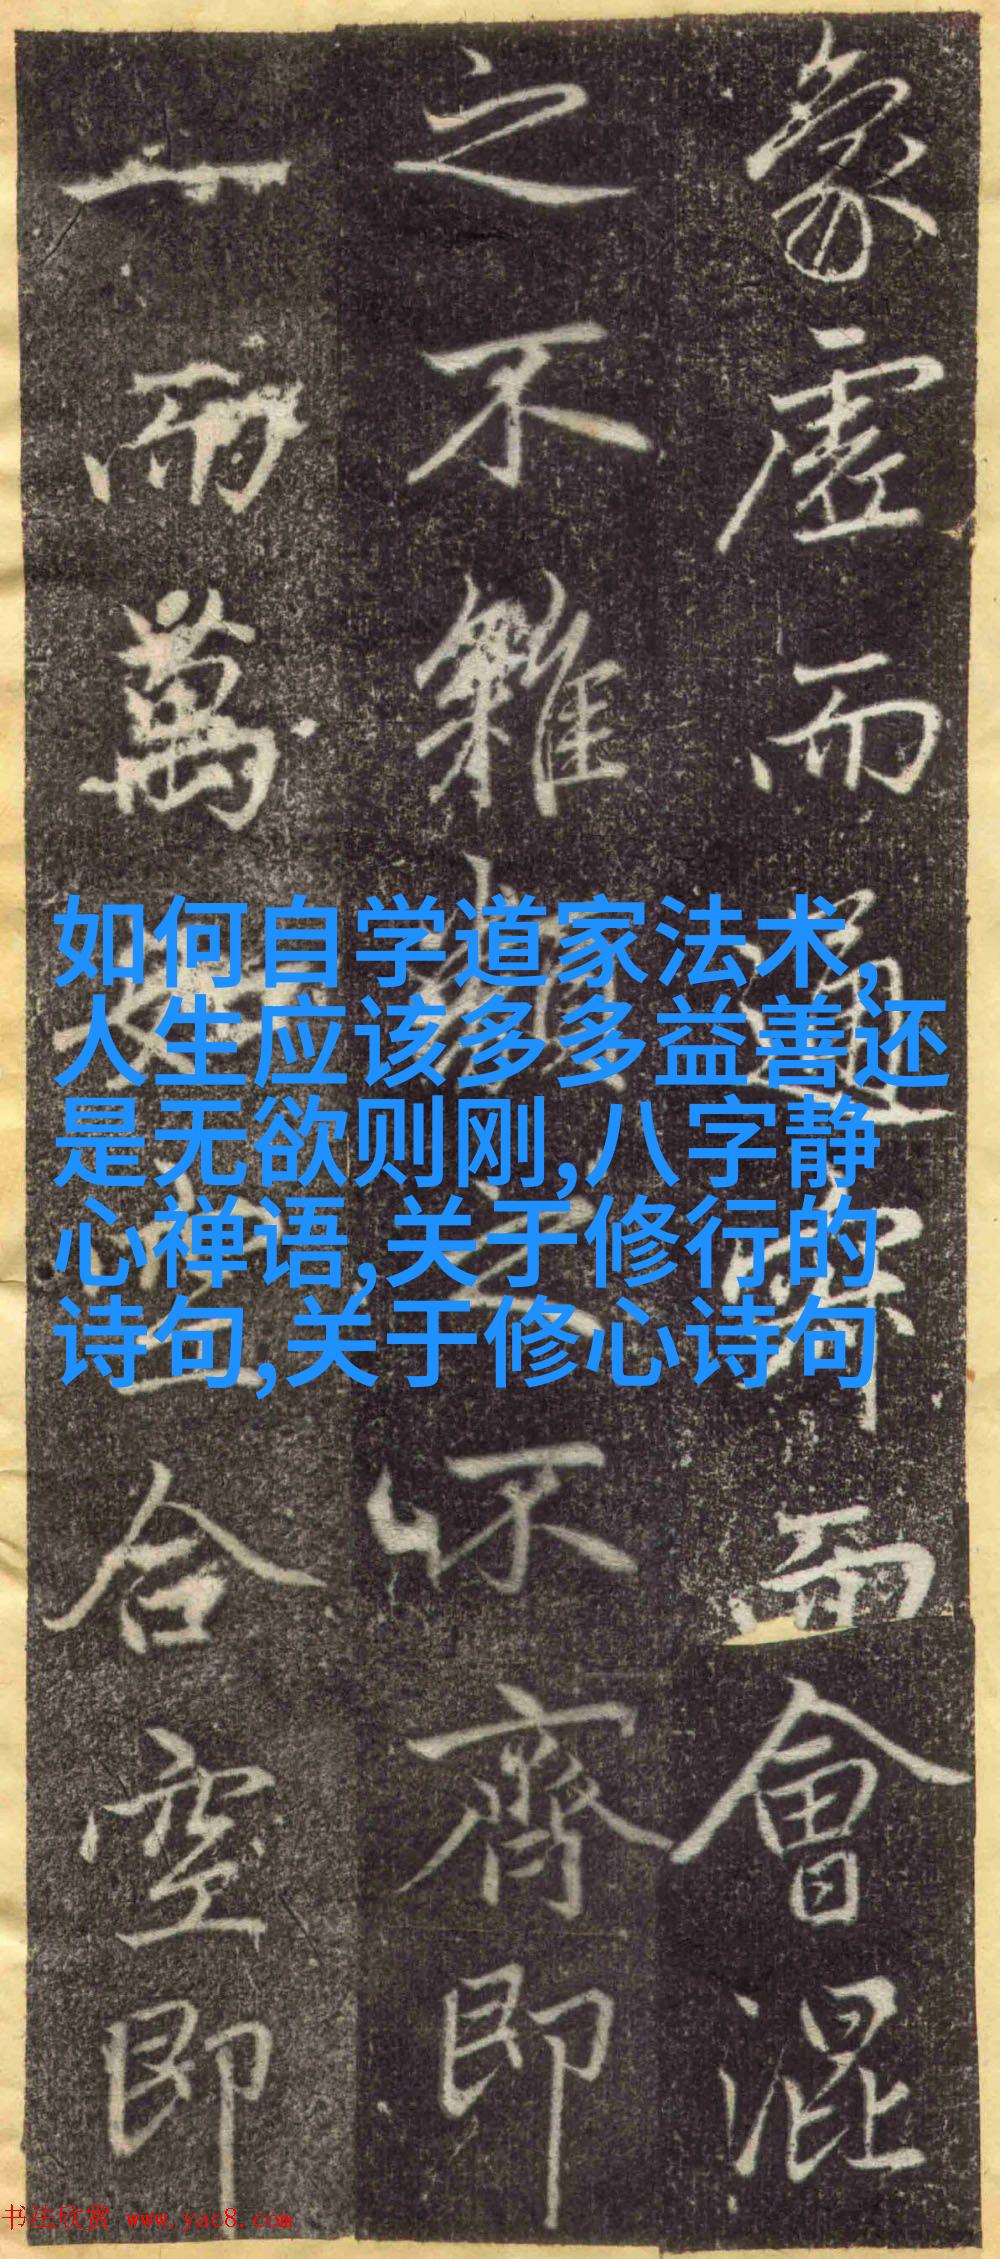 象虛而通寂而會混
之不雜之不齊即
一而萬安立合空即
如何自学道家法术,
人生应该多多益善还
是无欲则刚,八字静
心禅语,关于修行的
诗句,关于修心诗句
书法欣赏 www.yac8.com